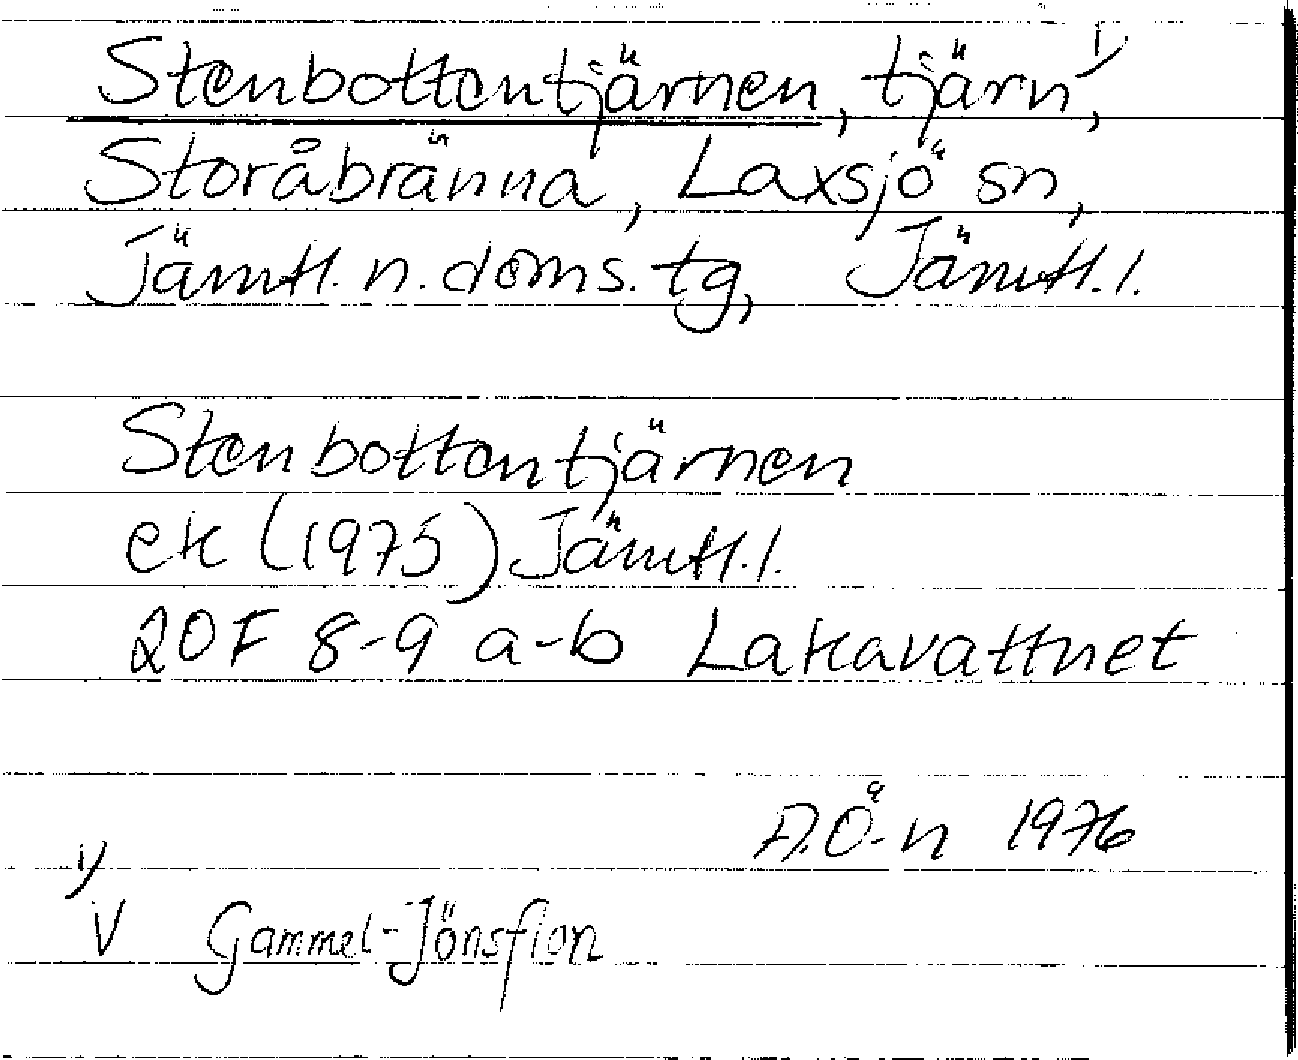 Stenbottentjärnen, tjärn 1),
Storåbränna, Laxsjö sn,
Jämtl. n. doms. tg, Jämtl. l.
Stenbottentjärnen
ek (1975) Jämtl. l.
20F 8-9 a-b Lakavattnet
A.Ö-n 1976
1)
V Gammel-Jönsflon